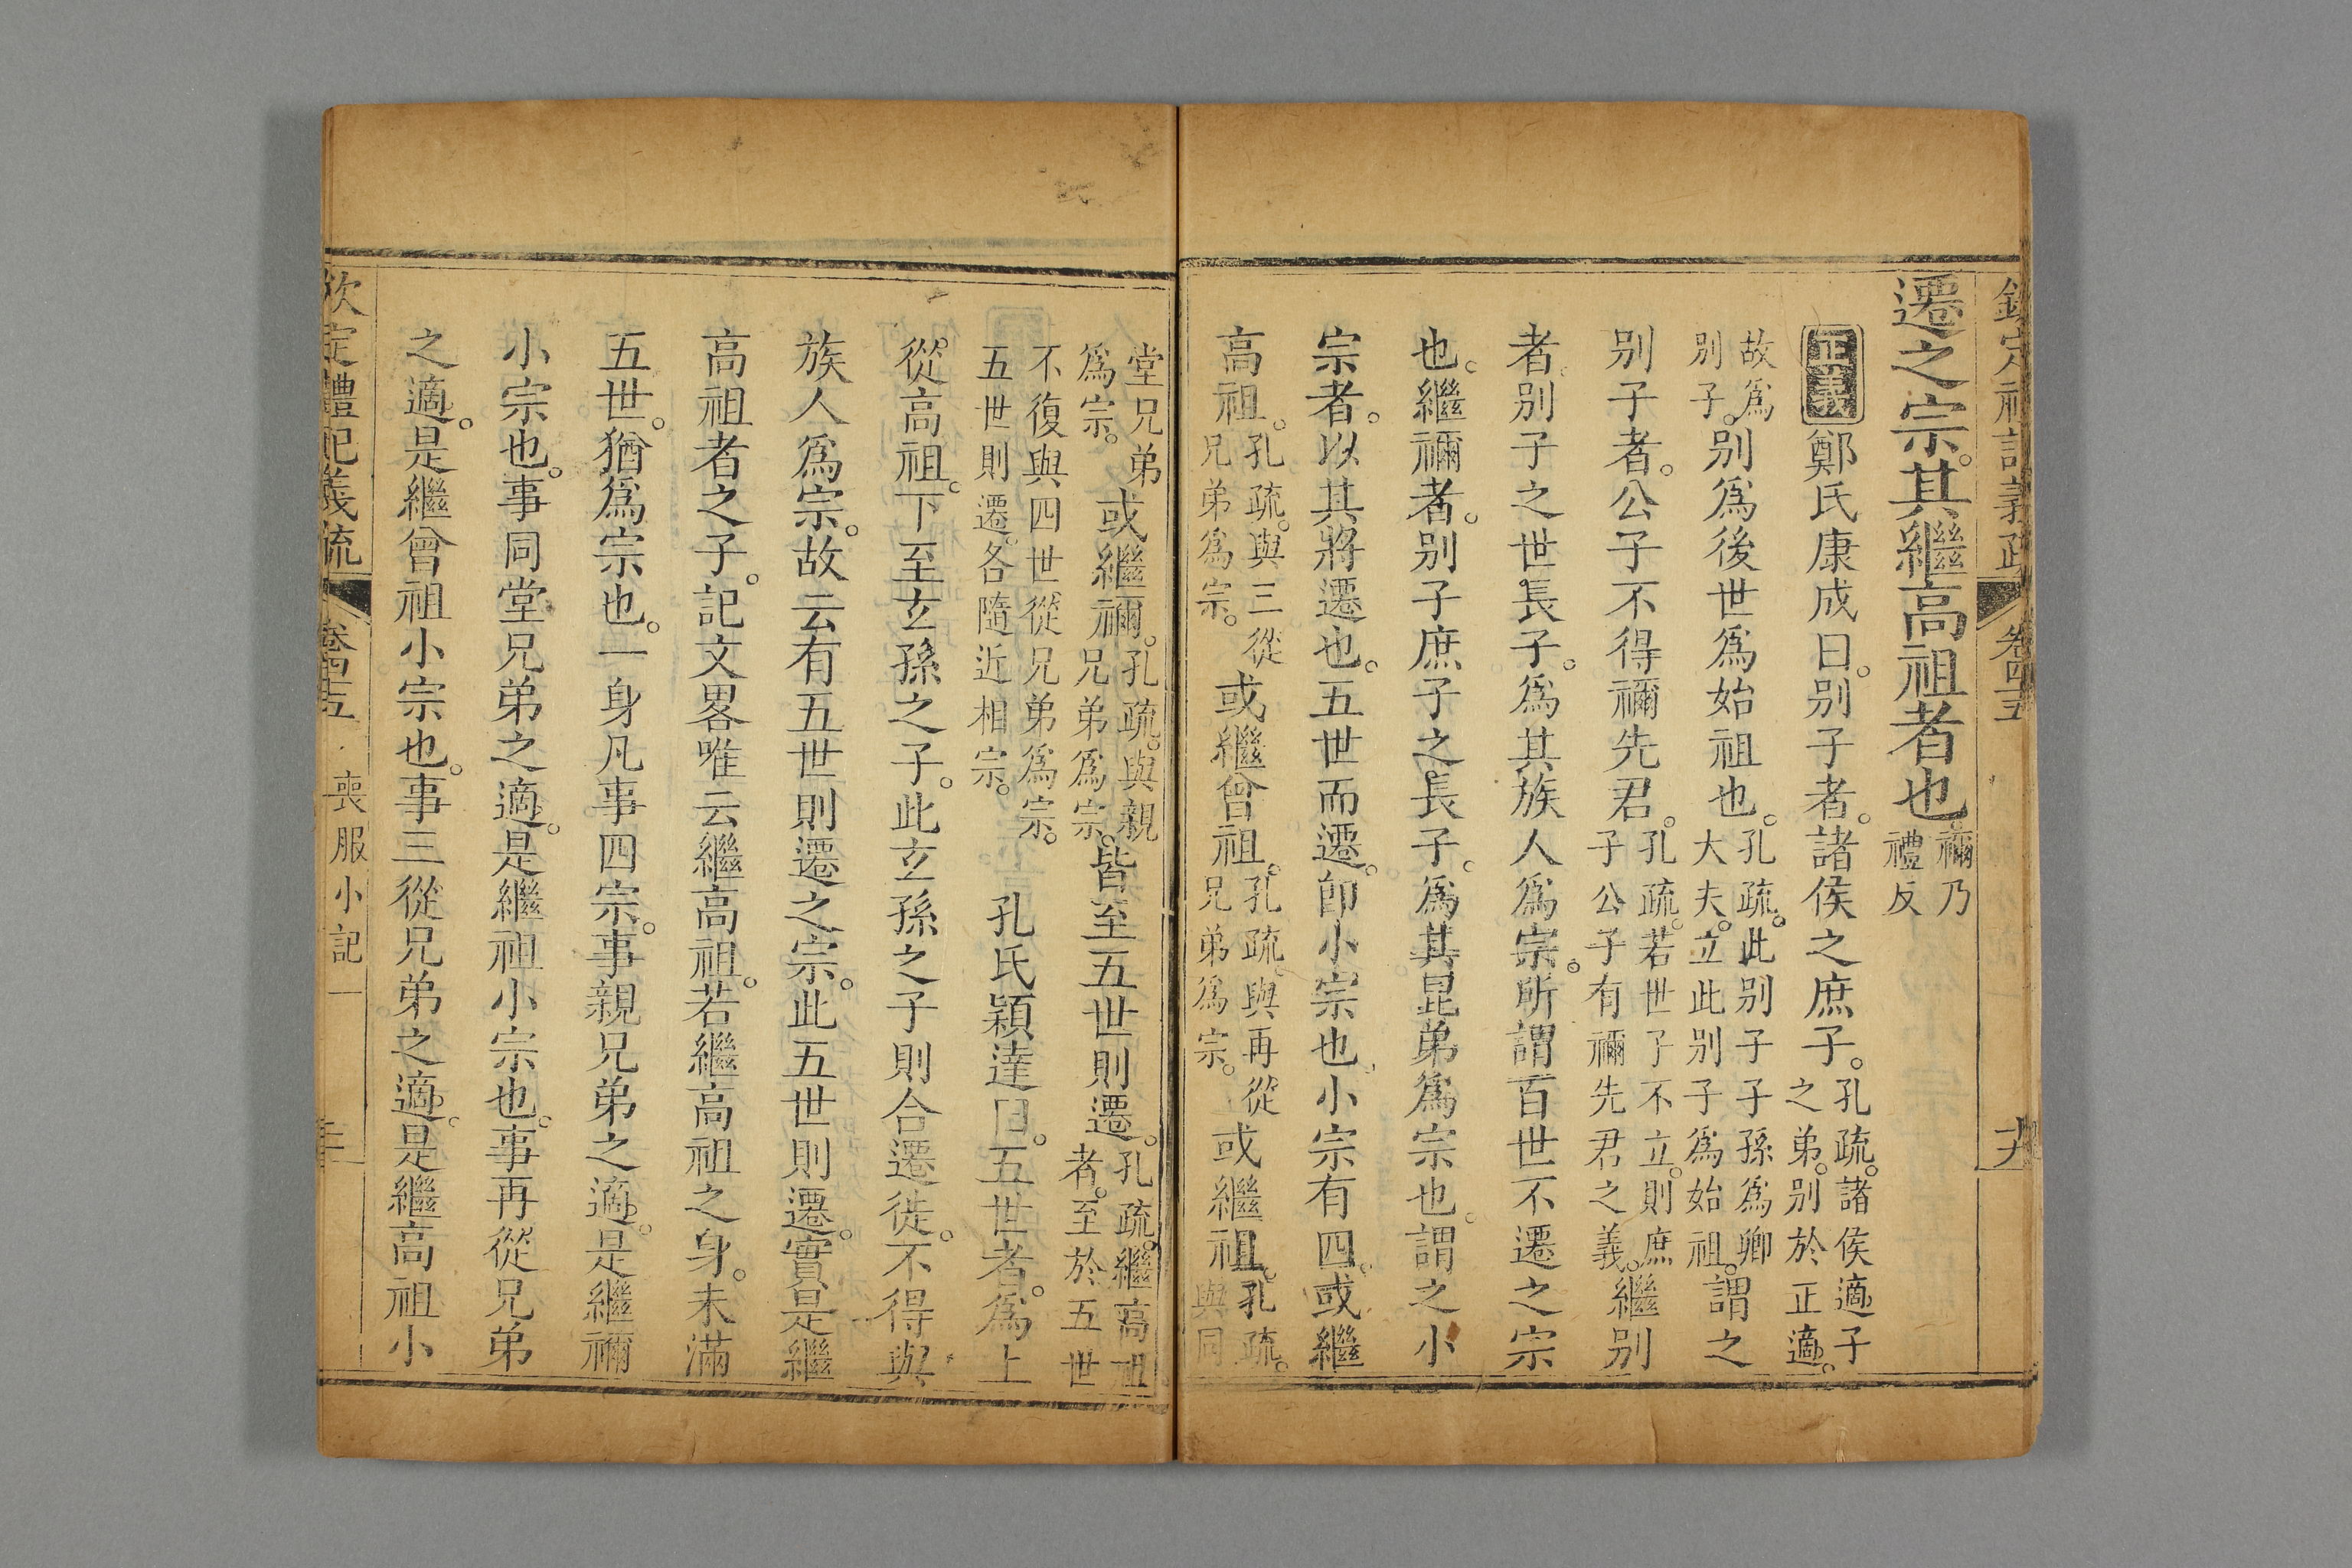 欽定禮記義疏 卷四十五 十九
遷之宗。其繼高祖者也。禰乃禮反
正義 鄭氏康成曰。别子者。諸侯之庶子。孔疏。諸侯適子之弟。别於正適。
故爲别子。别爲後世爲始祖也。孔疏。此别子子孫爲卿大夫。立此别子爲始祖。謂之
别子者。公子不得禰先君。孔疏。若世子不立。則庶子公子有禰先君之義。繼别
者别子之世長子。爲其族人爲宗。所謂百世不遷之宗
也。繼禰者。别子庶子之長子。爲其昆弟爲宗也。謂之小
宗者。以其將遷也。五世而遷。卽小宗也。小宗有四。或繼
高祖。孔疏。與三從兄弟爲宗。或繼曾祖。孔疏。與再從兄弟爲宗。或繼祖。孔疏。與同
堂兄弟爲宗。或繼禰。孔疏。與親兄弟爲宗。皆至五世則遷。孔疏。繼高祖者。至於五世
不復與四世從兄弟爲宗。五世則遷。各隨近相宗。 孔氏穎達曰。五世者。爲上
從高祖。下至玄孫之子。此玄孫之子則合遷徙。不得與
族人爲宗。故云有五世則遷之宗。此五世則遷。實是繼
高祖者之子。記文畧唯云繼高祖。若繼高祖之身。未滿
五世。猶爲宗也。一身凡事四宗。事親兄弟之適。是繼禰
小宗也。事同堂兄弟之適。是繼祖小宗也。事再從兄弟
之適。是繼曾祖小宗也。事三從兄弟之適。是繼高祖小
欽定禮記義疏 卷四十五 喪服小記一 二十